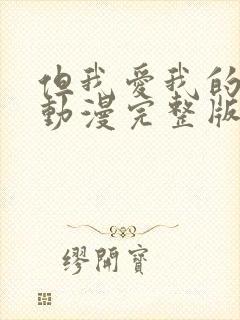 但我愛我的
動漫完整版
繆開寶